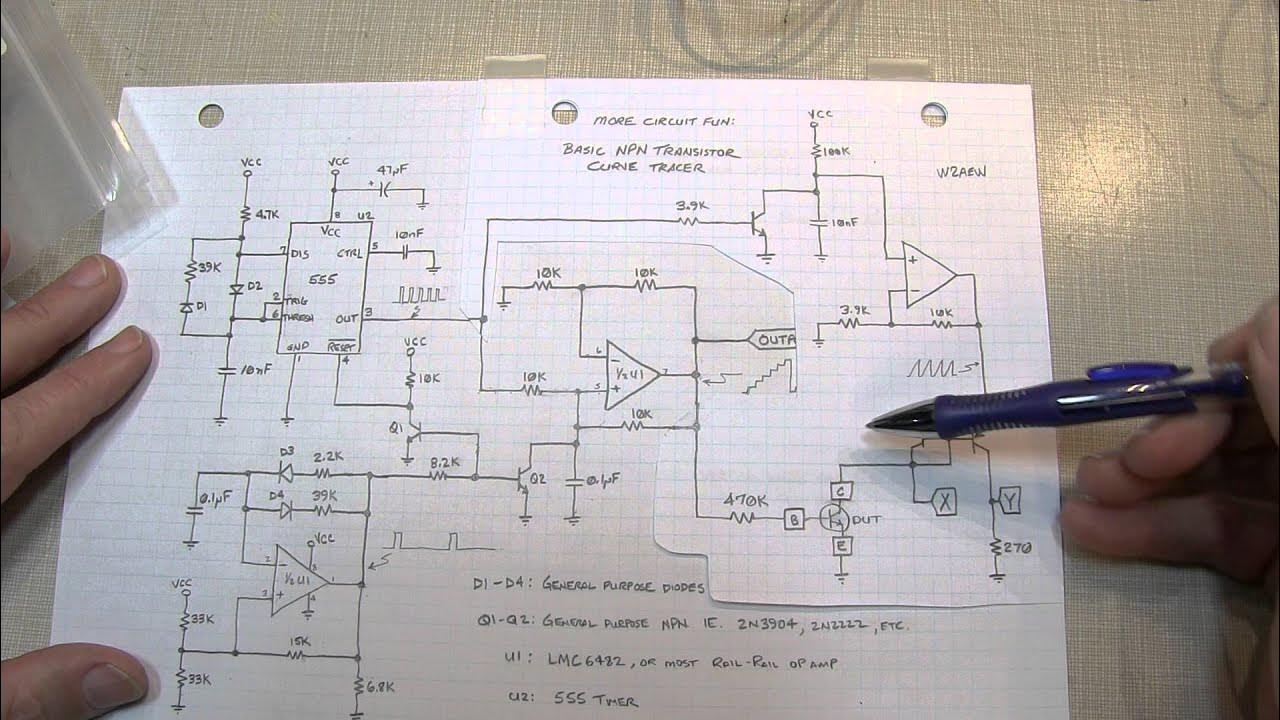 MORE CIRCUIT FUN:
BASIC NPN TRANSISTOR
CURVE TRACER
W2AEW
VCC
100K
10nF
3.9K
+
−
3.9K
10K
VCC
4.7K
39K
D1
D2
10nF
VCC
47µF
+
8
U2
VCC
7
DIS
CTRL
5
10nF
555
2
TRIG
6
THRESH
OUT
3
GND
RESET
1
4
VCC
10K
Q1
10K
10K
6
−
½U1
7
5
+
10K
10K
OUTA
0.1µF
Q2
8.2K
D3
2.2K
D4
39K
0.1µF
VCC
2
−
8
½U1
1
3
+
4
VCC
33K
33K
15K
6.8K
470K
B
C
E
DUT
X
Y
270
D1-D4: GENERAL PURPOSE DIODES
Q1-Q2: GENERAL PURPOSE NPN IE. 2N3904, 2N2222, ETC.
U1: LMC6482, OR MOST RAIL-RAIL OP AMP
U2: 555 TIMER